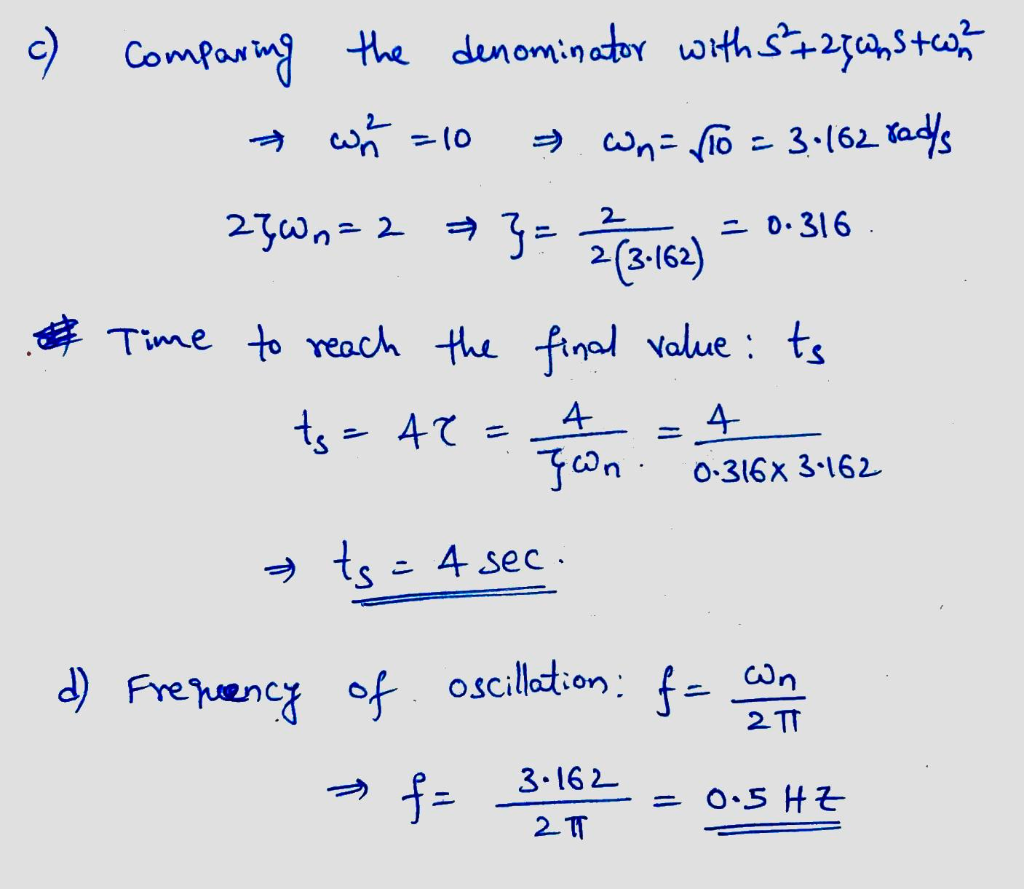 c) Comparing the denominator with s²+2ζωₙs+ωₙ²
⇒ ωₙ² = 10 ⇒ ωₙ = √10 = 3.162 rad/s
2ζωₙ = 2 ⇒ ζ = 2/2(3.162) = 0.316.
Time to reach the final value: ts
ts = 4τ = 4/ζωₙ = 4/0.316×3.162
⇒ ts = 4 sec.
d) Frequency of oscillation: f = ωₙ/2π
⇒ f = 3.162/2π = 0.5 HZ